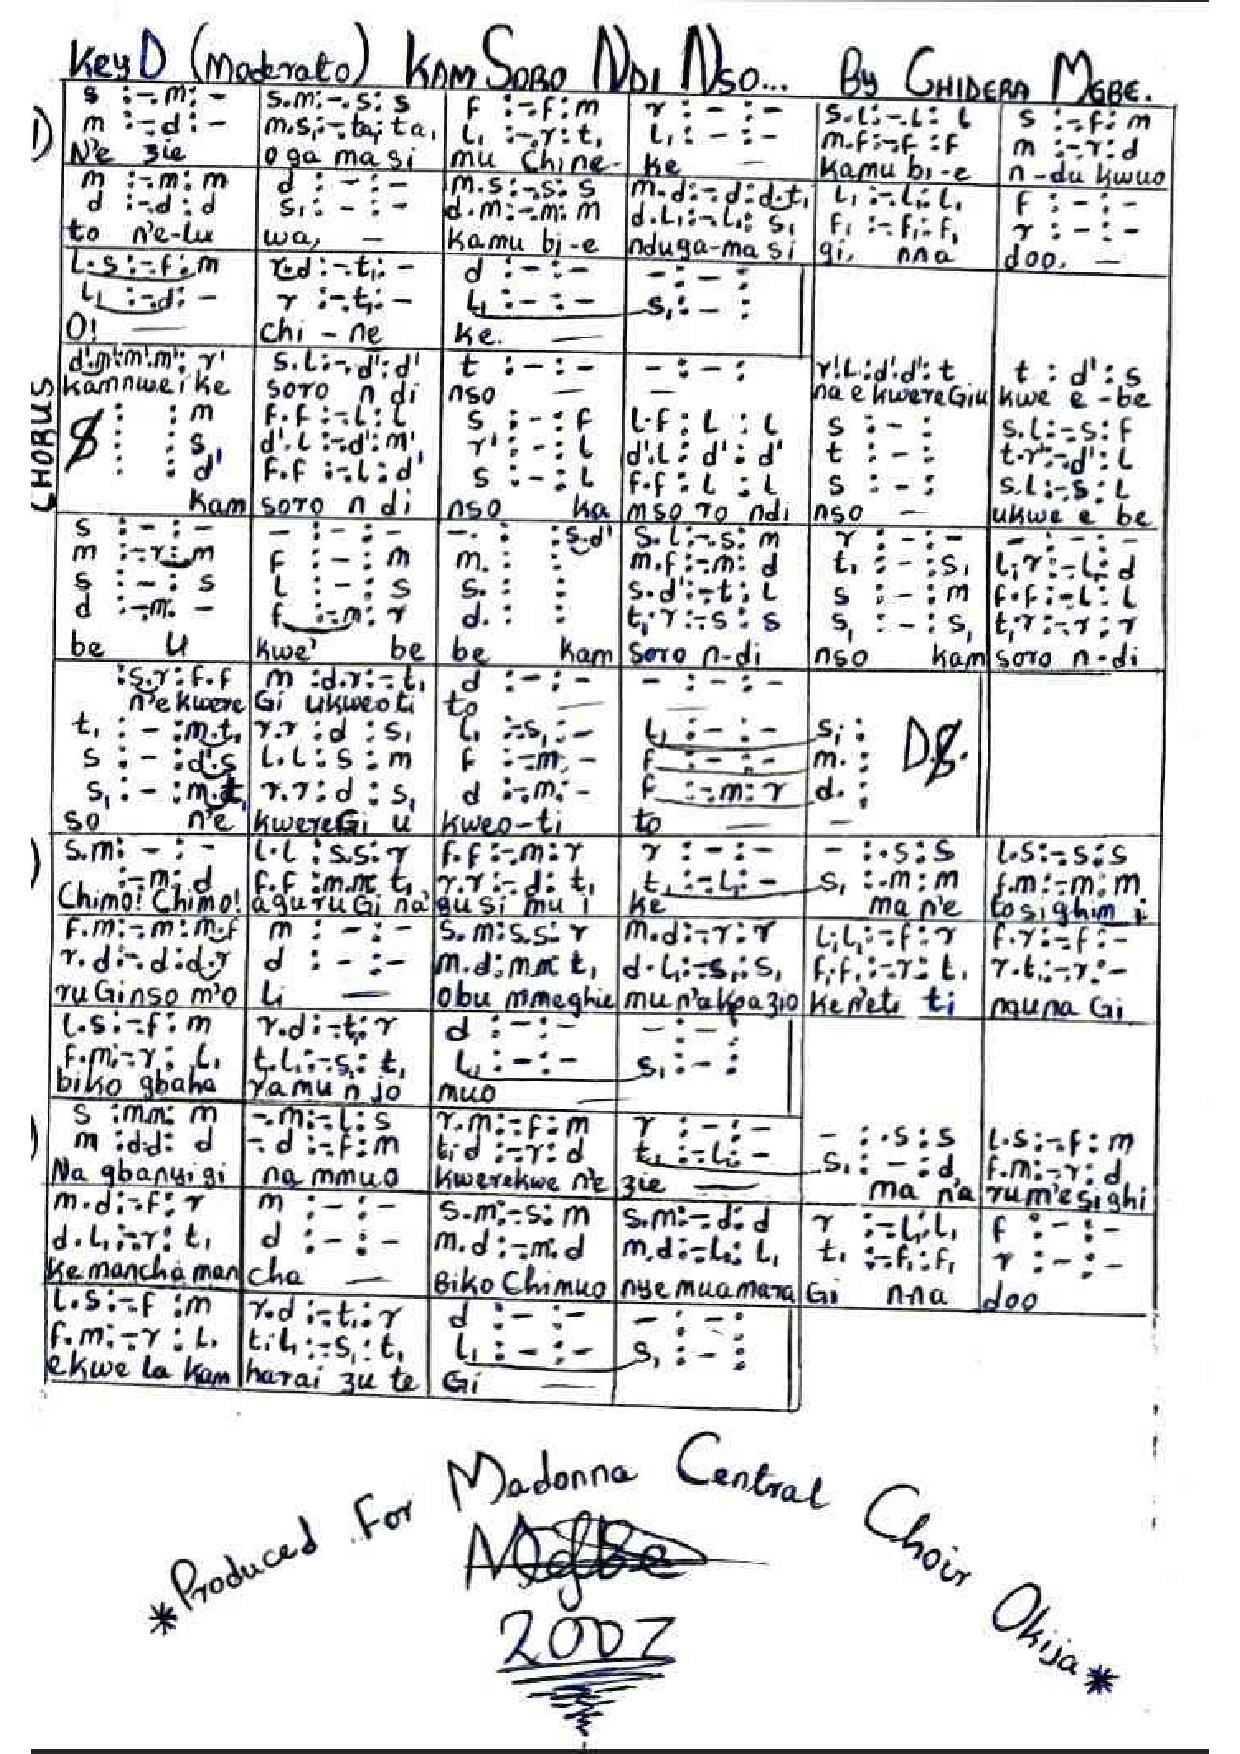 Key D (Moderato) KAM SORO NDI NSO... BY CHIDERA MGBE.
1) s :-.m: - | s.m:-.s: s | f :-f: m | r : - : - | s.l:-.l: l | s :-f: m
m :-.d: - | m.s,:-.ta,: ta, | l, :-.r: t, | l, : - : - | m.f:-f :f | m :-.r: d
N'e zie | oga ma si | mu Chine- | ke — | kamu bi-e | n-du kwuo
m :-.m: m | d : - : - | m.s:-.s: s | m.d:-d: d.t, | l, :-.l,: l, | f : - : -
d :-.d: d | s, : - : - | d.m:-.m: m | d.l,:-.l,: s, | f, :-.f,: f, | r : - : -
to n'e-lu | wa, — | kamu bi-e | nduga-ma si | gi, nna | doo. —
l.s:-f: m | r.d:-t,: - | d : - : - | - : - :
l, :-.d: - | r :-.t,: - | l, : - : - | s, : - :
O! — | chi - ne | ke. —
CHORUS
d'.m':m'.m': r' | s.l:-.d': d' | t : - : - | - : - : | r'.l:d'.d': t | t : d' : s
kamnwei ke | soro n di | nso — | — | na e kwere Giu | kwe e -be
: : m | f.f :-.l: l | s : - : f | l.f : l : l | s : - : | s.l:-.s: f
: : s, | d'.l :-.d': m' | r' : - : l | d'.l : d' : d' | t : - : | t.r':-.d': l
: : d' | f.f :-.l: d' | s : - : l | f.f : l : l | s : - : | s.l:-.s: l
kam | soro n di | nso ka | mso ro ndi | nso — | ukwe e be
s : - : - | - : - : - | -. : : s.d' | s.l:-.s: m | r : - : - | - : - : -
m :-.r: m | f : - : m | m. : : | m.f:-.m: d | t, : - : s, | l,.r:-.l,: d
s : - : s | l : - : s | s. : : | s.d':-.t: l | s : - : m | f.f:-.l: l
d :-.m: - | f :-.m: r | d. : : | t,.r:-.s: s | s, : - : s, | t,.r:-.r: r
be u | kwe' be | be kam | soro n-di | nso kam | soro n-di
: s.r: f.f | m :d.r:-.t, | d : - : - | - : - : -
n'e kwere | Gi ukweoti | to — | —
t, : - : m.t, | r.r : d : s, | l, :-.s,: - | t, : - : - | s, : | D.S.
s : - : d'.s | l.l : s : m | f :-.m: - | f : - : - | m. :
s, : - : m.t, | r.r : d : s, | d :-.m: - | f :-.m: r | d. :
so n'e | kwereGi u | kweo-ti | to — | —
) s.m: - : - | l.l : s.s: r | f.f:-.m: r | r : - : - | - :.s: s | l.s:-.s: s
:-.m: d | f.f :m.m: t, | r.r:-.d: t, | t, :-.l,: - | s, :.m: m | f.m:-.m: m
Chimo! Chimo! | aguru Gi na' | gu si mu i | ke | ma n'e | tosi ghim i
f.m:-.m: m.f | m : - : - | s.m:s.s: r | m.d:-.r: r | l,.l,:-.f: r | f.r:-.f: -
r.d:-.d: d.r | d : - : - | m.d:m.m: t, | d.l,:-.s,: s, | f,.f,:-.r: t, | r.t,:-.r: -
ru Ginso m'o | li — | obu mmeghie | mu n'akpazio | ke n'eti ti | nquna Gi
l.s:-.f: m | r.d:-.t,: r | d : - : - | - : - :
f.m:-.r: l, | t,.l,:-.s,: t, | l, : - : - | s, : - :
biko gbaha | ramu n jo | muo —
) s :m.m: m | -.m:-.l: s | r.m:-.f: m | r : - : - | - :.s: s | l.s:-.f: m
m :d.d: d | -.d:-.f: m | t,.d:-.r: d | t, :-.l,: - | s, : - : d, | f.m:-.r: d
Na gbanyigi | na mmuo | kwerekwe n'e | zie — | ma n'a | rum'esighi
m.d:-.f: r | m : - : - | s.m:-.s: m | s.m:-.d: d | r :-.l,: l, | f : - : -
d.l,:-.r: t, | d : - : - | m.d:-.m: d | m.d:-.l,: l, | t, :-.f,: f, | r : - : -
ke mancha man | cha — | Biko Chimuo | nye muamara | Gi nna | doo
l.s:-.f :m | r.d:-.t,: r | d : - : - | - : - :
f.m:-.r : l, | t,.l,:-.s,: t, | l, : - : - | s, : - :
ekwe la kam | harai zu te | Gi —
*Produced For Madonna Central Choir Okija*
Mgbe
2007